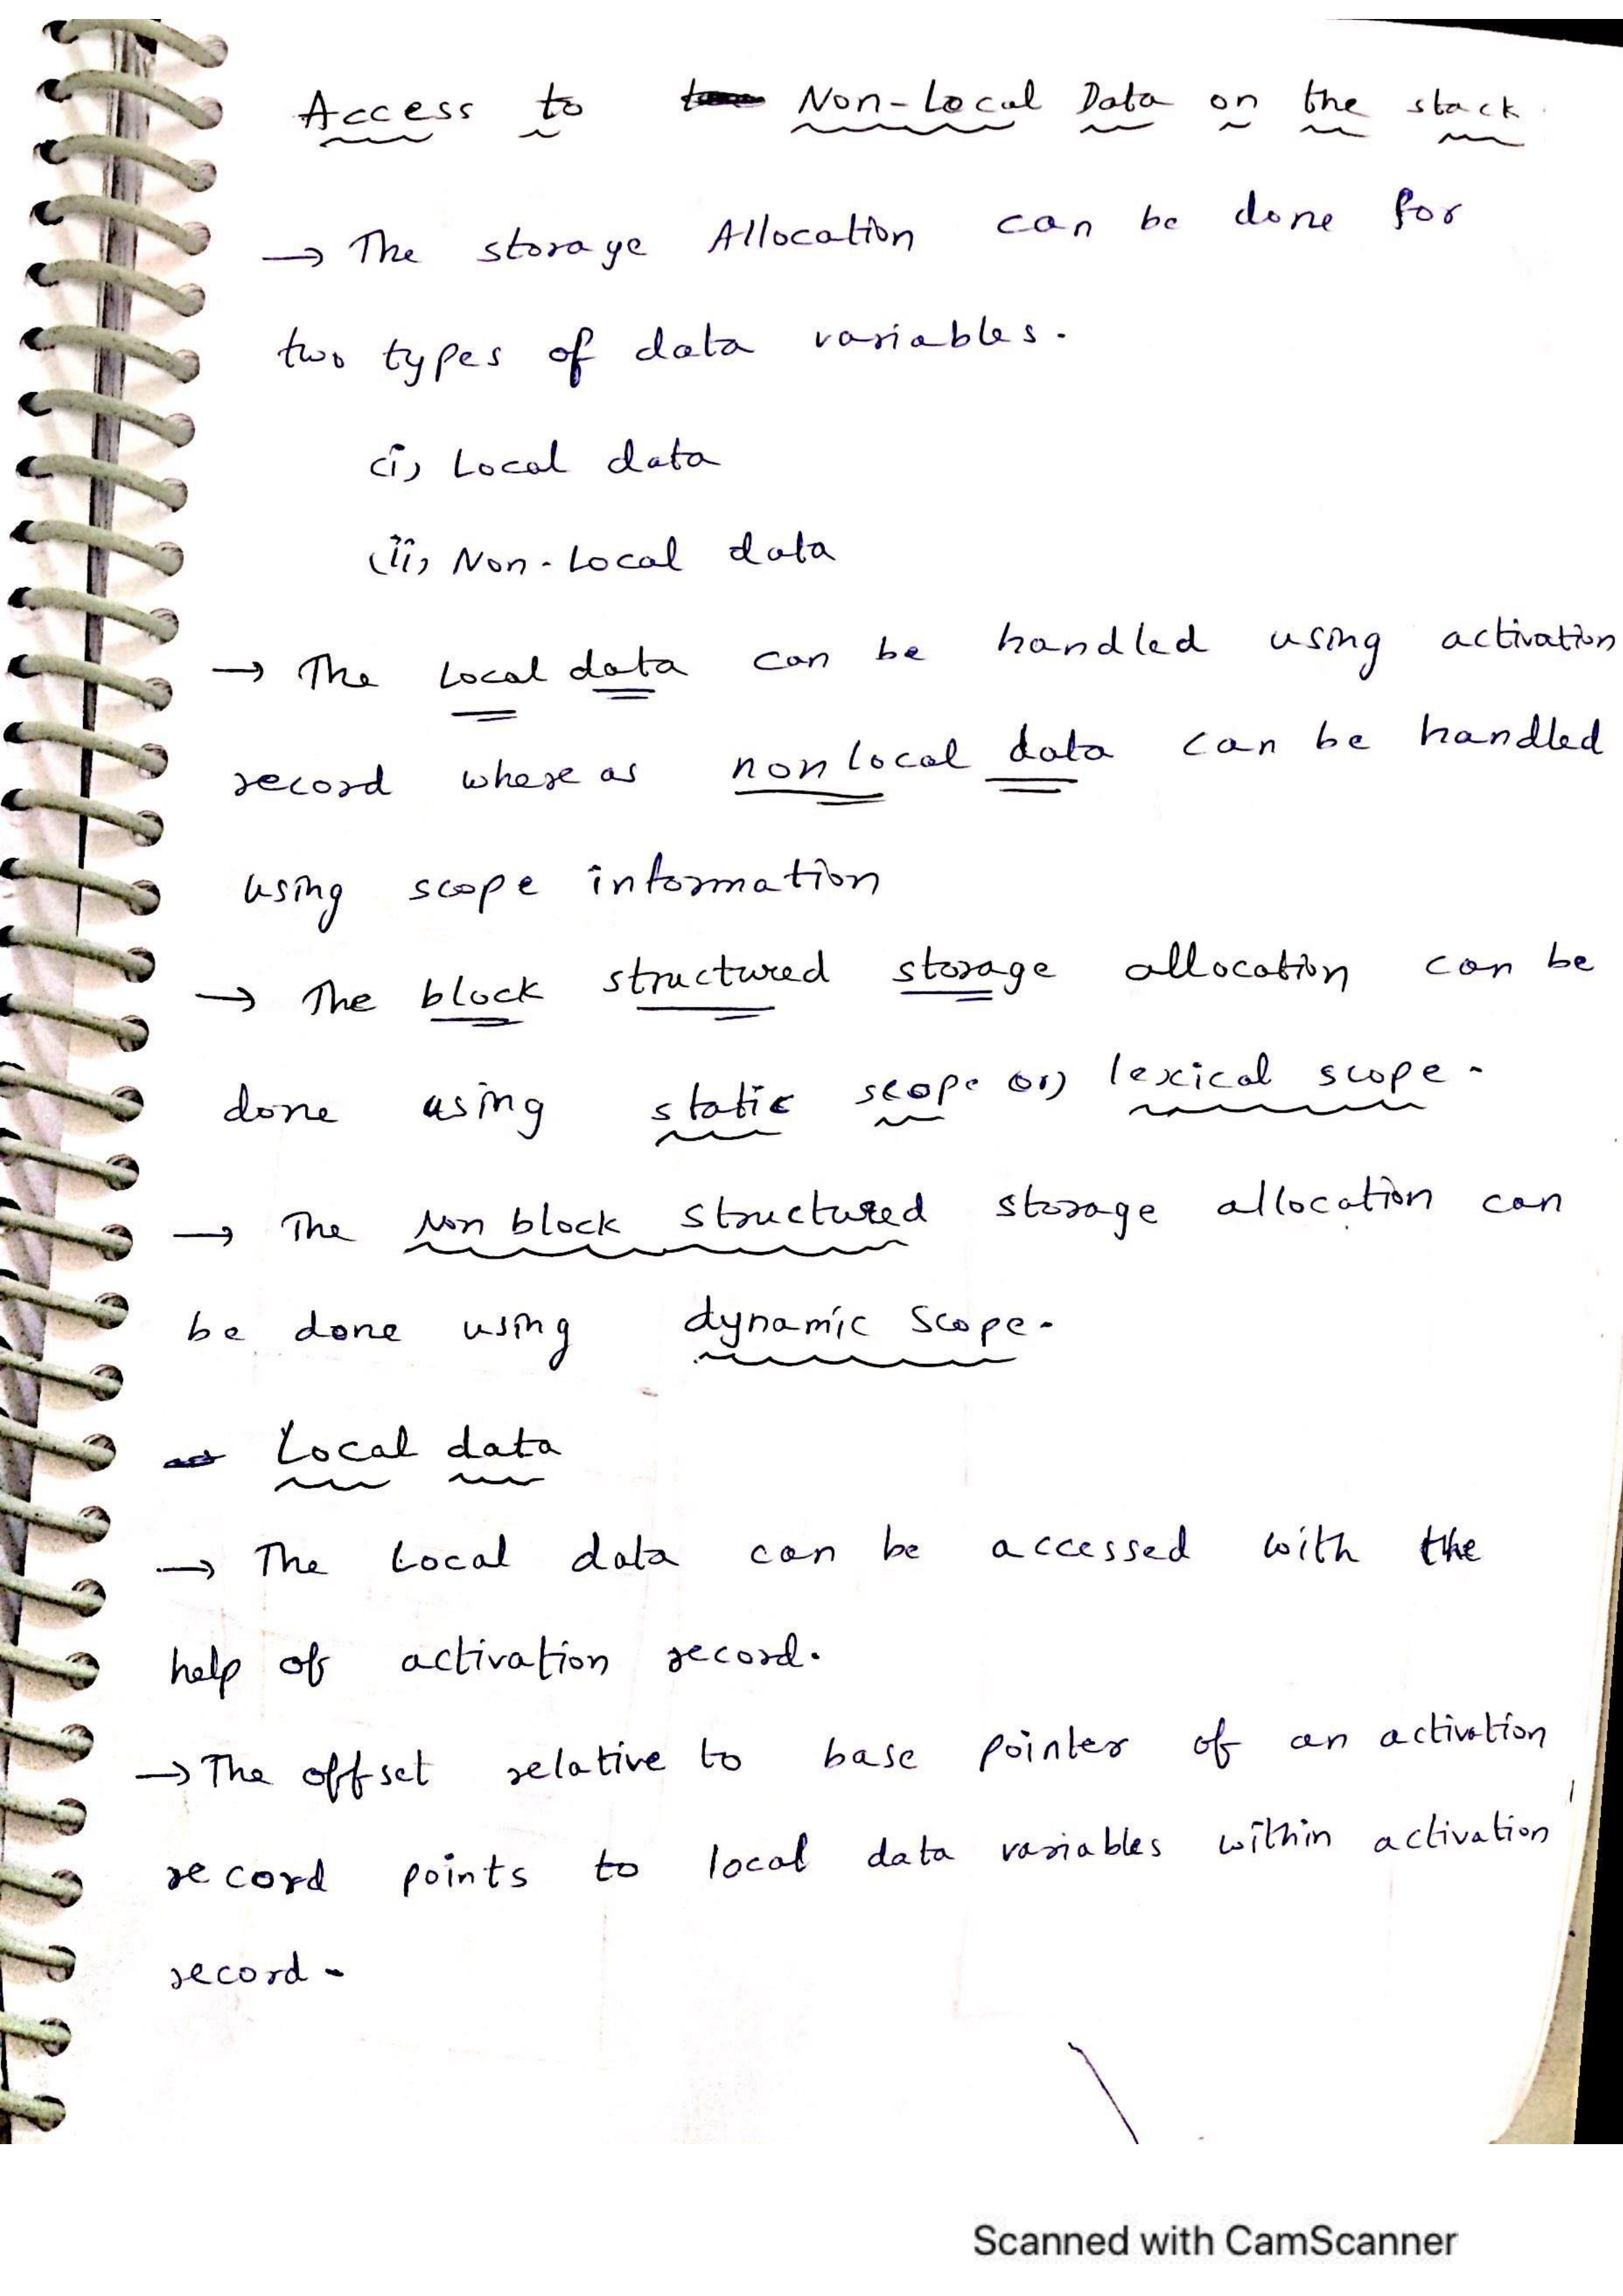 Access to Non-Local Data on the stack.
→ The storage Allocation can be done for
two types of data variables.
(i) Local data
(ii) Non-Local data
→ The Local data can be handled using activation
record where as non local data can be handled
using scope information
→ The block structured storage allocation can be
done using static scope or) lexical scope.
→ The Non block structured storage allocation can
be done using dynamic scope.
Local data
→ The Local data can be accessed with the
help of activation record.
→ The offset relative to base pointer of an activation
record points to local data variables within activation
record.
Scanned with CamScanner